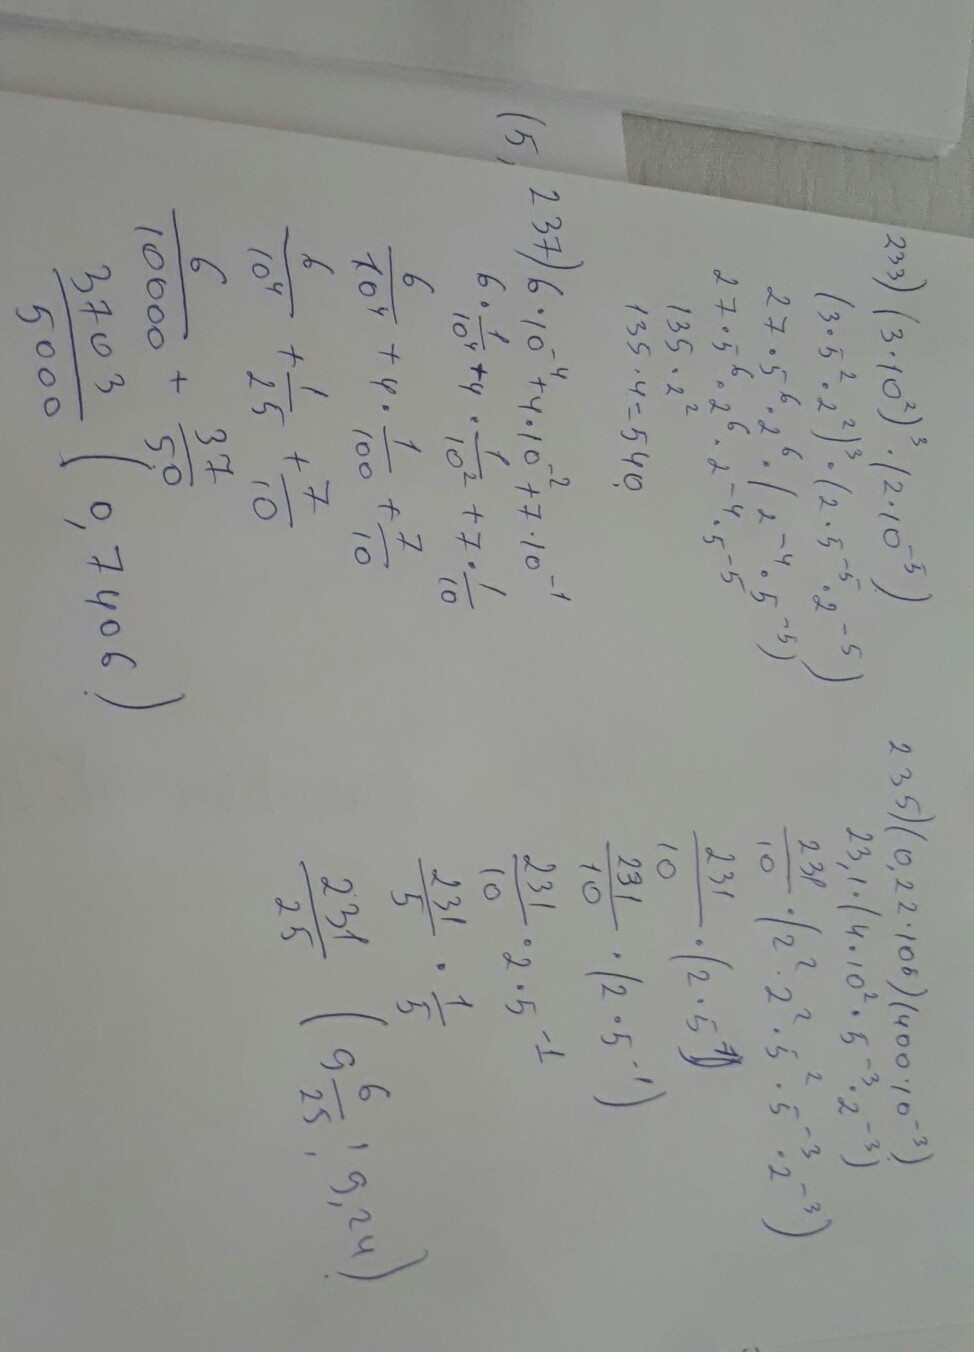 233) (3·10²)³·(2·10⁻⁵)
(3·5²·2²)³·(2·5⁻⁵·2⁻⁵)
27·5⁶·2⁶·(2⁻⁴·5⁻⁵)
27·5⁶·2⁶·2⁻⁴·5⁻⁵
135·2²
135·4=540
237) 6·10⁻⁴+4·10⁻²+7·10⁻¹
6·1/10⁴+4·1/10²+7·1/10
6/10⁴+4·1/100+7/10
6/10⁴+1/25+7/10
6/10000+37/50
3703/5000 (0,7406)
(5,
235) (0,22·106)(400·10⁻³)
23,1·(4·10²·5⁻³·2⁻³)
231/10·(2²·2²·5²·5⁻³·2⁻³)
231/10·(2·5
231/10·(2·5⁻¹)
231/10·2·5⁻¹
231/5·1/5
231/25 (9 6/25, 9,24)